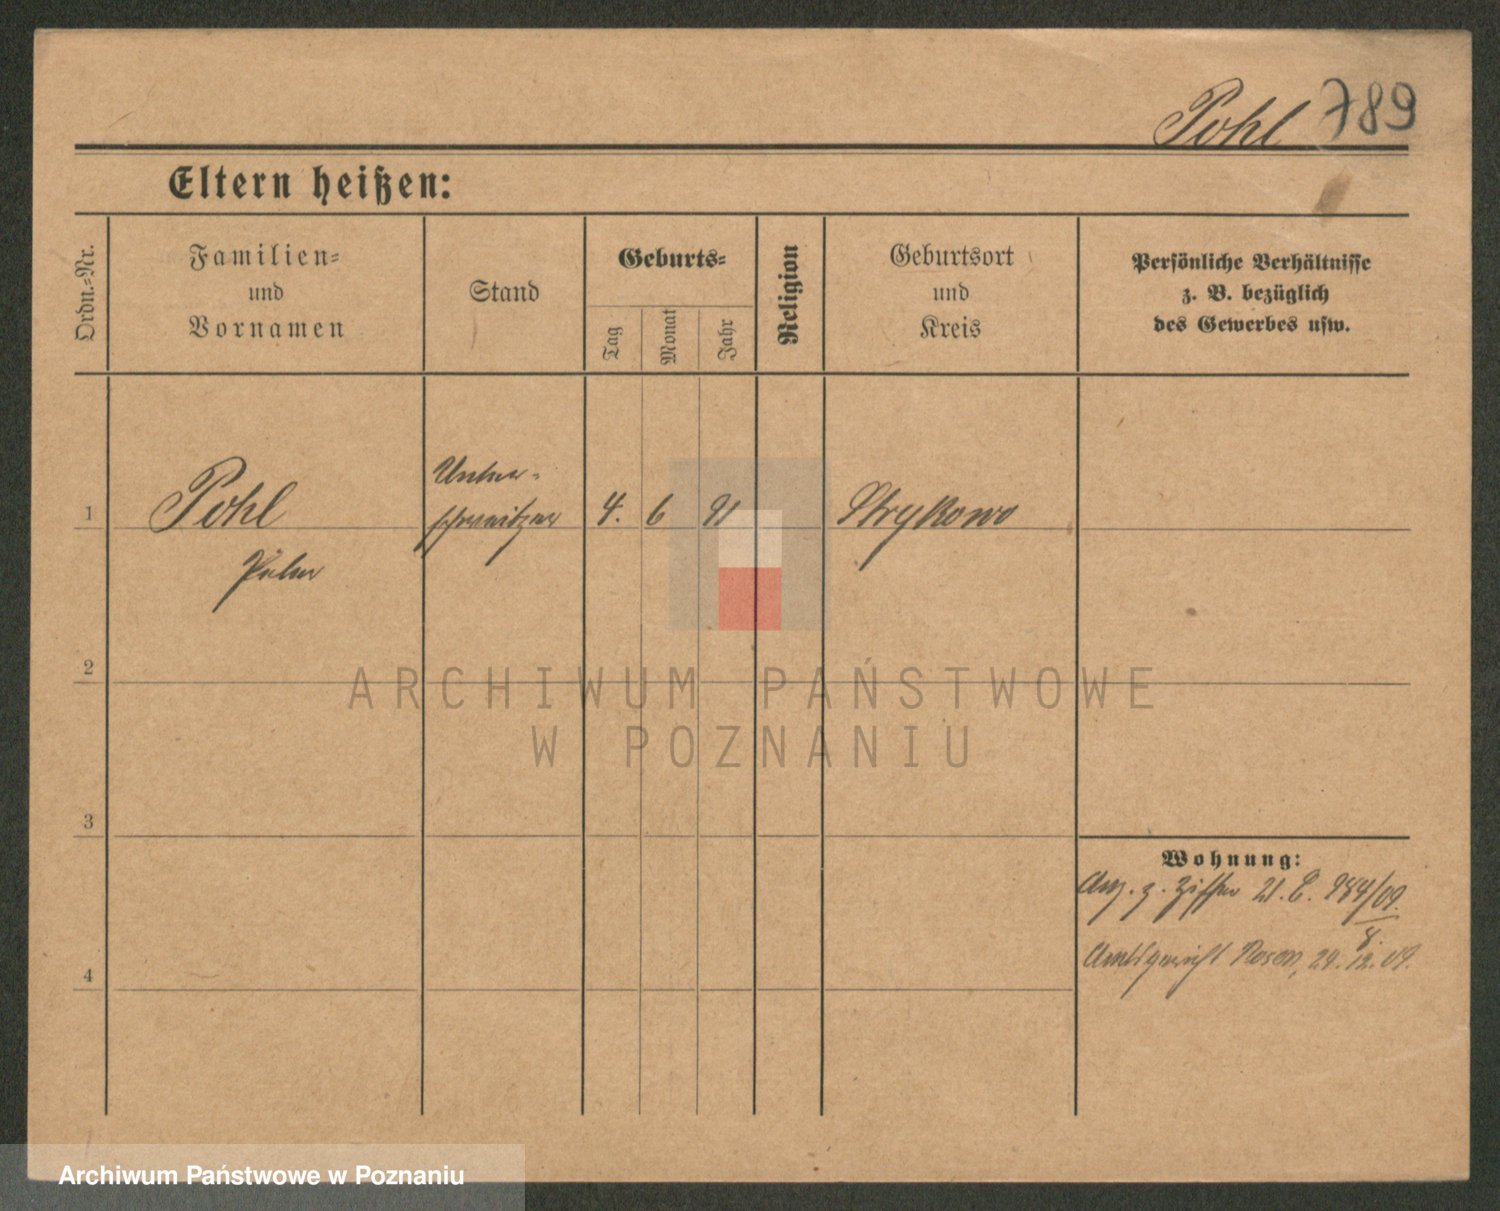 Pohl 789
Eltern heißen:
Ordn.-Nr.
Familien-
und
Vornamen
Stand
Geburts-
Tag
Monat
Jahr
Religion
Geburtsort
und
Kreis
Persönliche Verhältnisse
z. B. bezüglich
des Gewerbes usw.
1
Pohl
4. 6 91
Strykowo
2
ARCHIWUM PAŃSTWOWE
W POZNANIU
3
Wohnung:
Anz. z. Ziffer 21. E. 984/09.
8.
Amtsgericht Posen, 29. 12. 09.
4
Archiwum Państwowe w Poznaniu